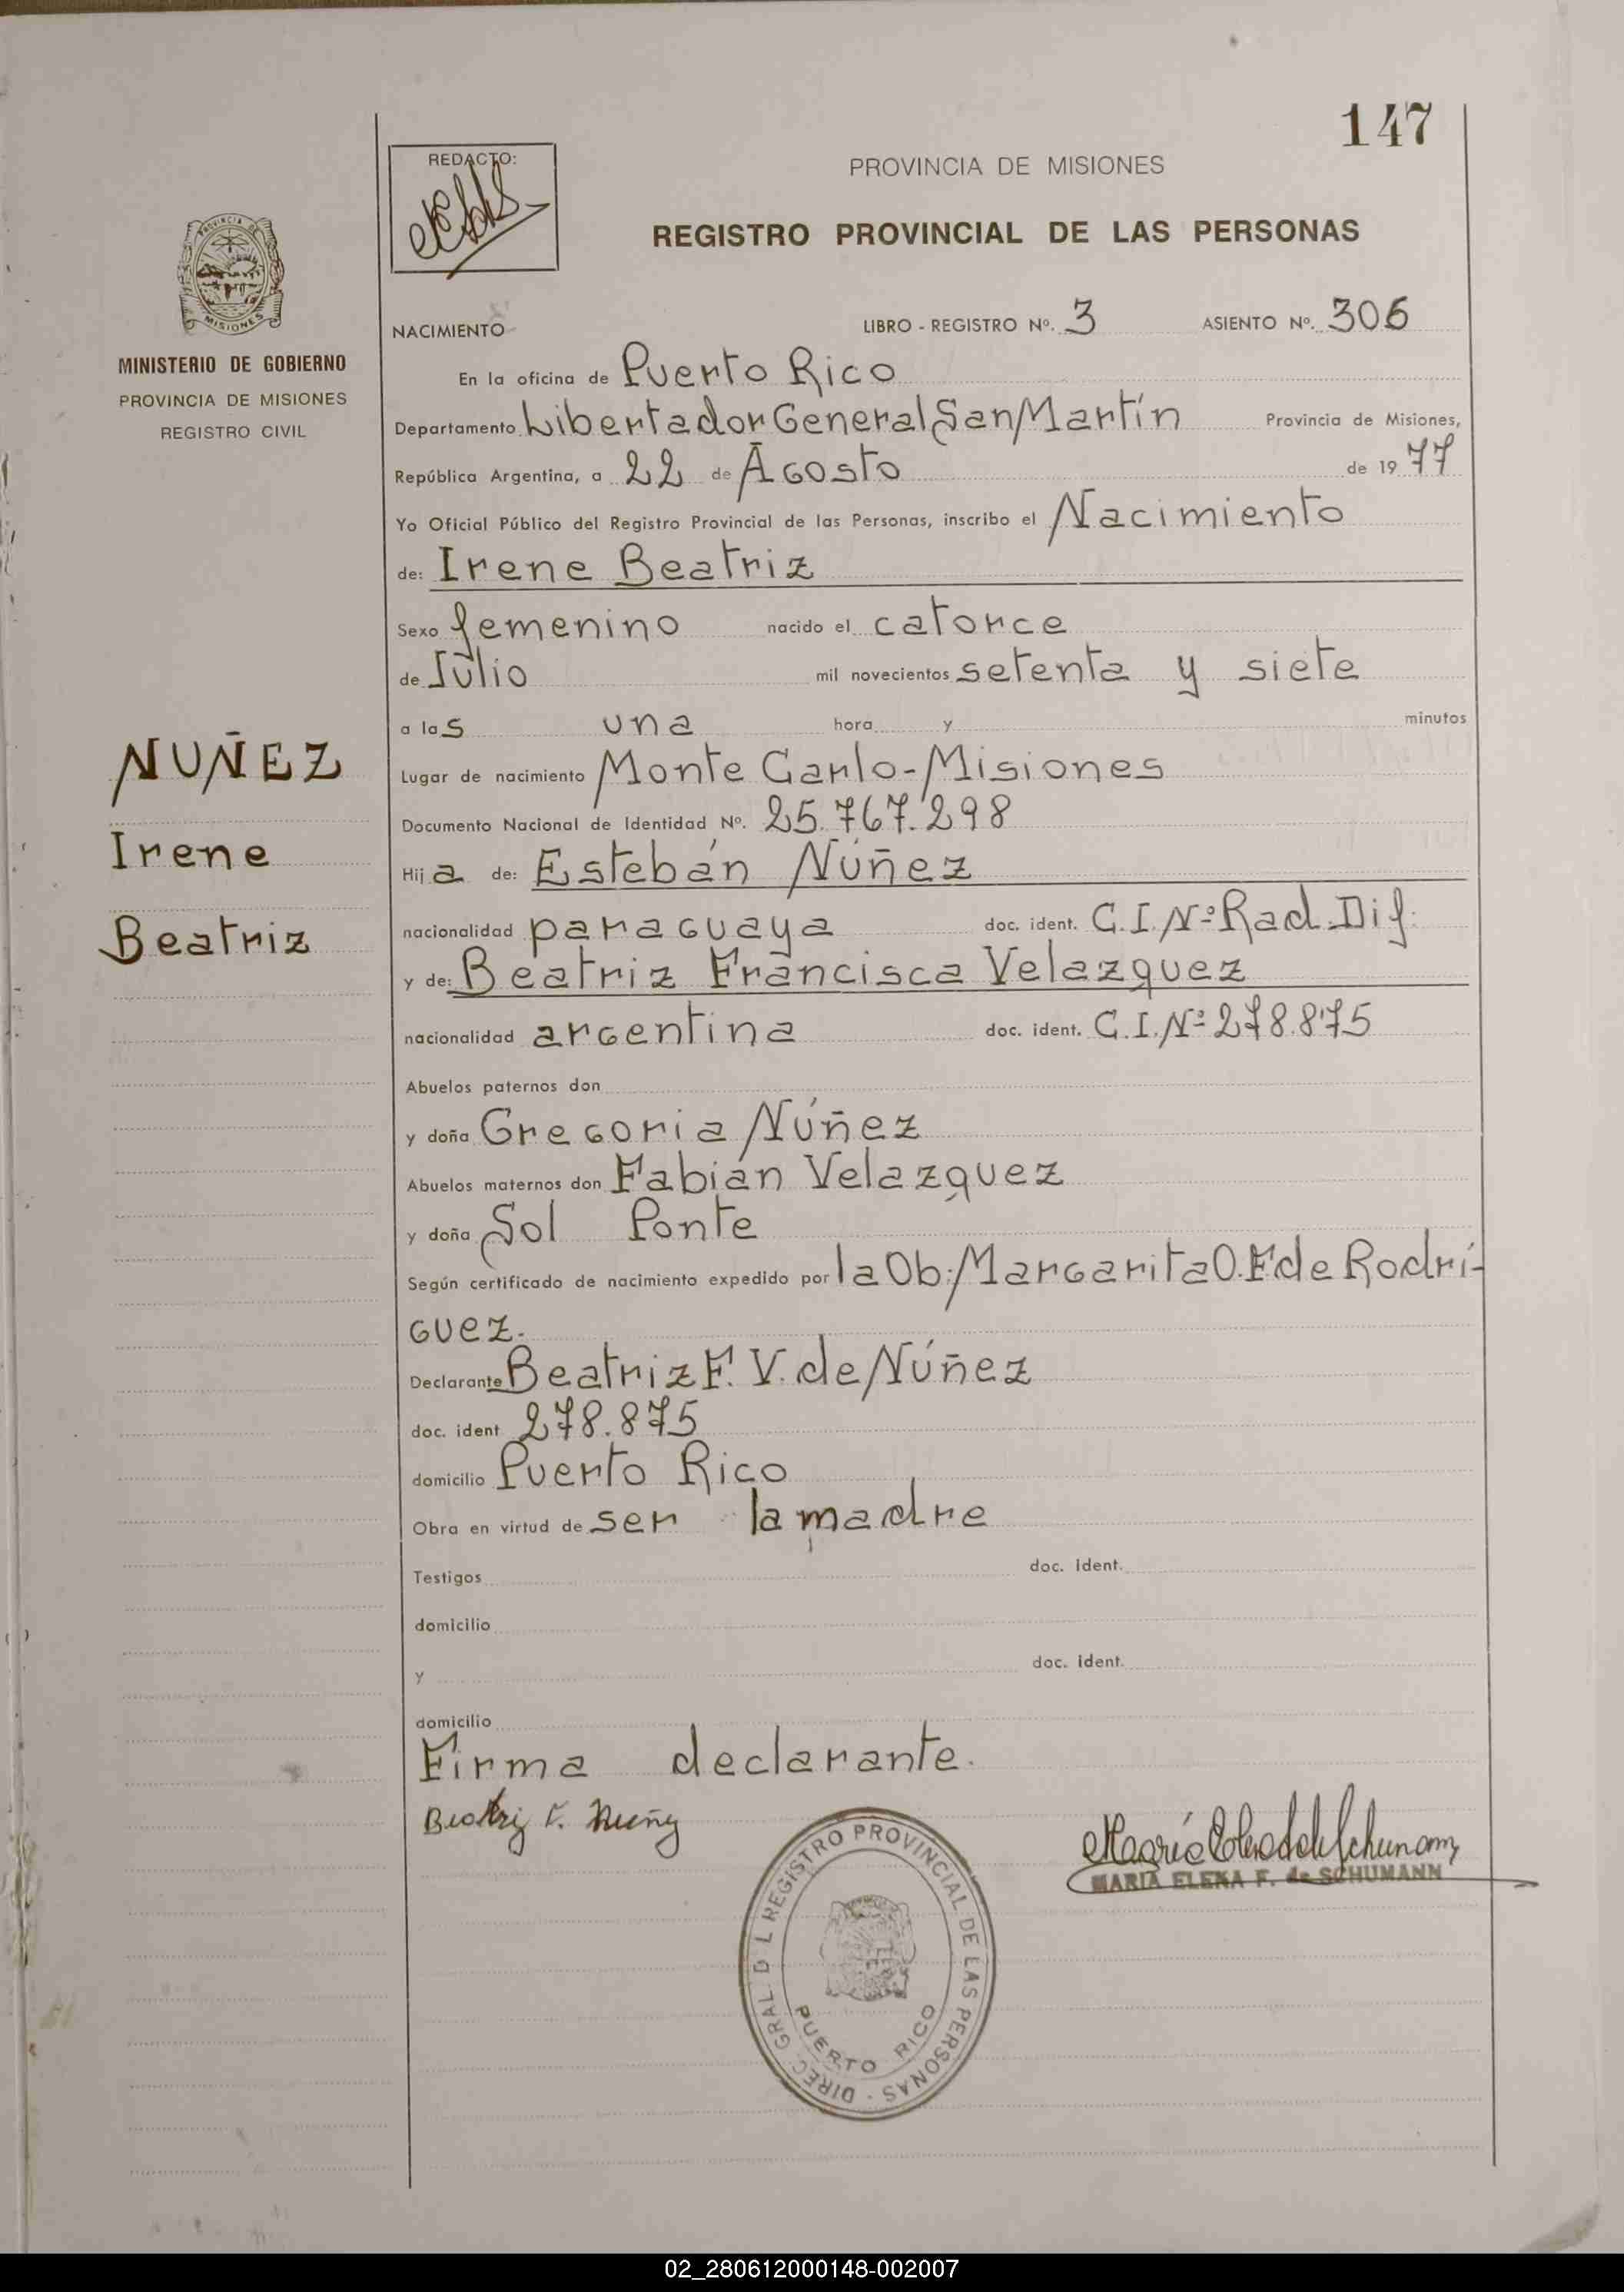 147
REDACTO:
PROVINCIA DE MISIONES
REGISTRO PROVINCIAL DE LAS PERSONAS
PROVINCIA DE
MISIONES
MINISTERIO DE GOBIERNO
PROVINCIA DE MISIONES
REGISTRO CIVIL
NUÑEZ
Irene
Beatriz
NACIMIENTO LIBRO - REGISTRO Nº. 3 ASIENTO Nº. 306
En la oficina de Puerto Rico
Departamento Libertador General San Martín Provincia de Misiones,
República Argentina, a 22 de Agosto de 1977
Yo Oficial Público del Registro Provincial de las Personas, inscribo el Nacimiento
de: Irene Beatriz
Sexo femenino nacido el catorce
de Julio mil novecientos setenta y siete
a las una hora y minutos
Lugar de nacimiento Monte Carlo-Misiones
Documento Nacional de Identidad Nº. 25.767.298
Hija de: Estebán Núñez
nacionalidad paraguaya doc. ident. C.I.Nº Rad. Dif.
y de: Beatriz Francisca Velazquez
nacionalidad argentina doc. ident. C.I.Nº 278.875
Abuelos paternos don
y doña Gregoria Núñez
Abuelos maternos don Fabián Velazquez
y doña Sol Ponte
Según certificado de nacimiento expedido por la Ob: Margarita O.F de Rodrí-
guez.
Declarante Beatriz F. V. de Núñez
doc. ident 278.875
domicilio Puerto Rico
Obra en virtud de ser la madre
Testigos doc. ident.
domicilio
y doc. ident.
domicilio
Firma declarante.
Beatriz F. Nuñez
MARIA ELENA F. de SCHUMANN
DIREC GRAL D L REGISTRO PROVINCIAL DE LAS PERSONAS
PUERTO RICO
02_280612000148-002007